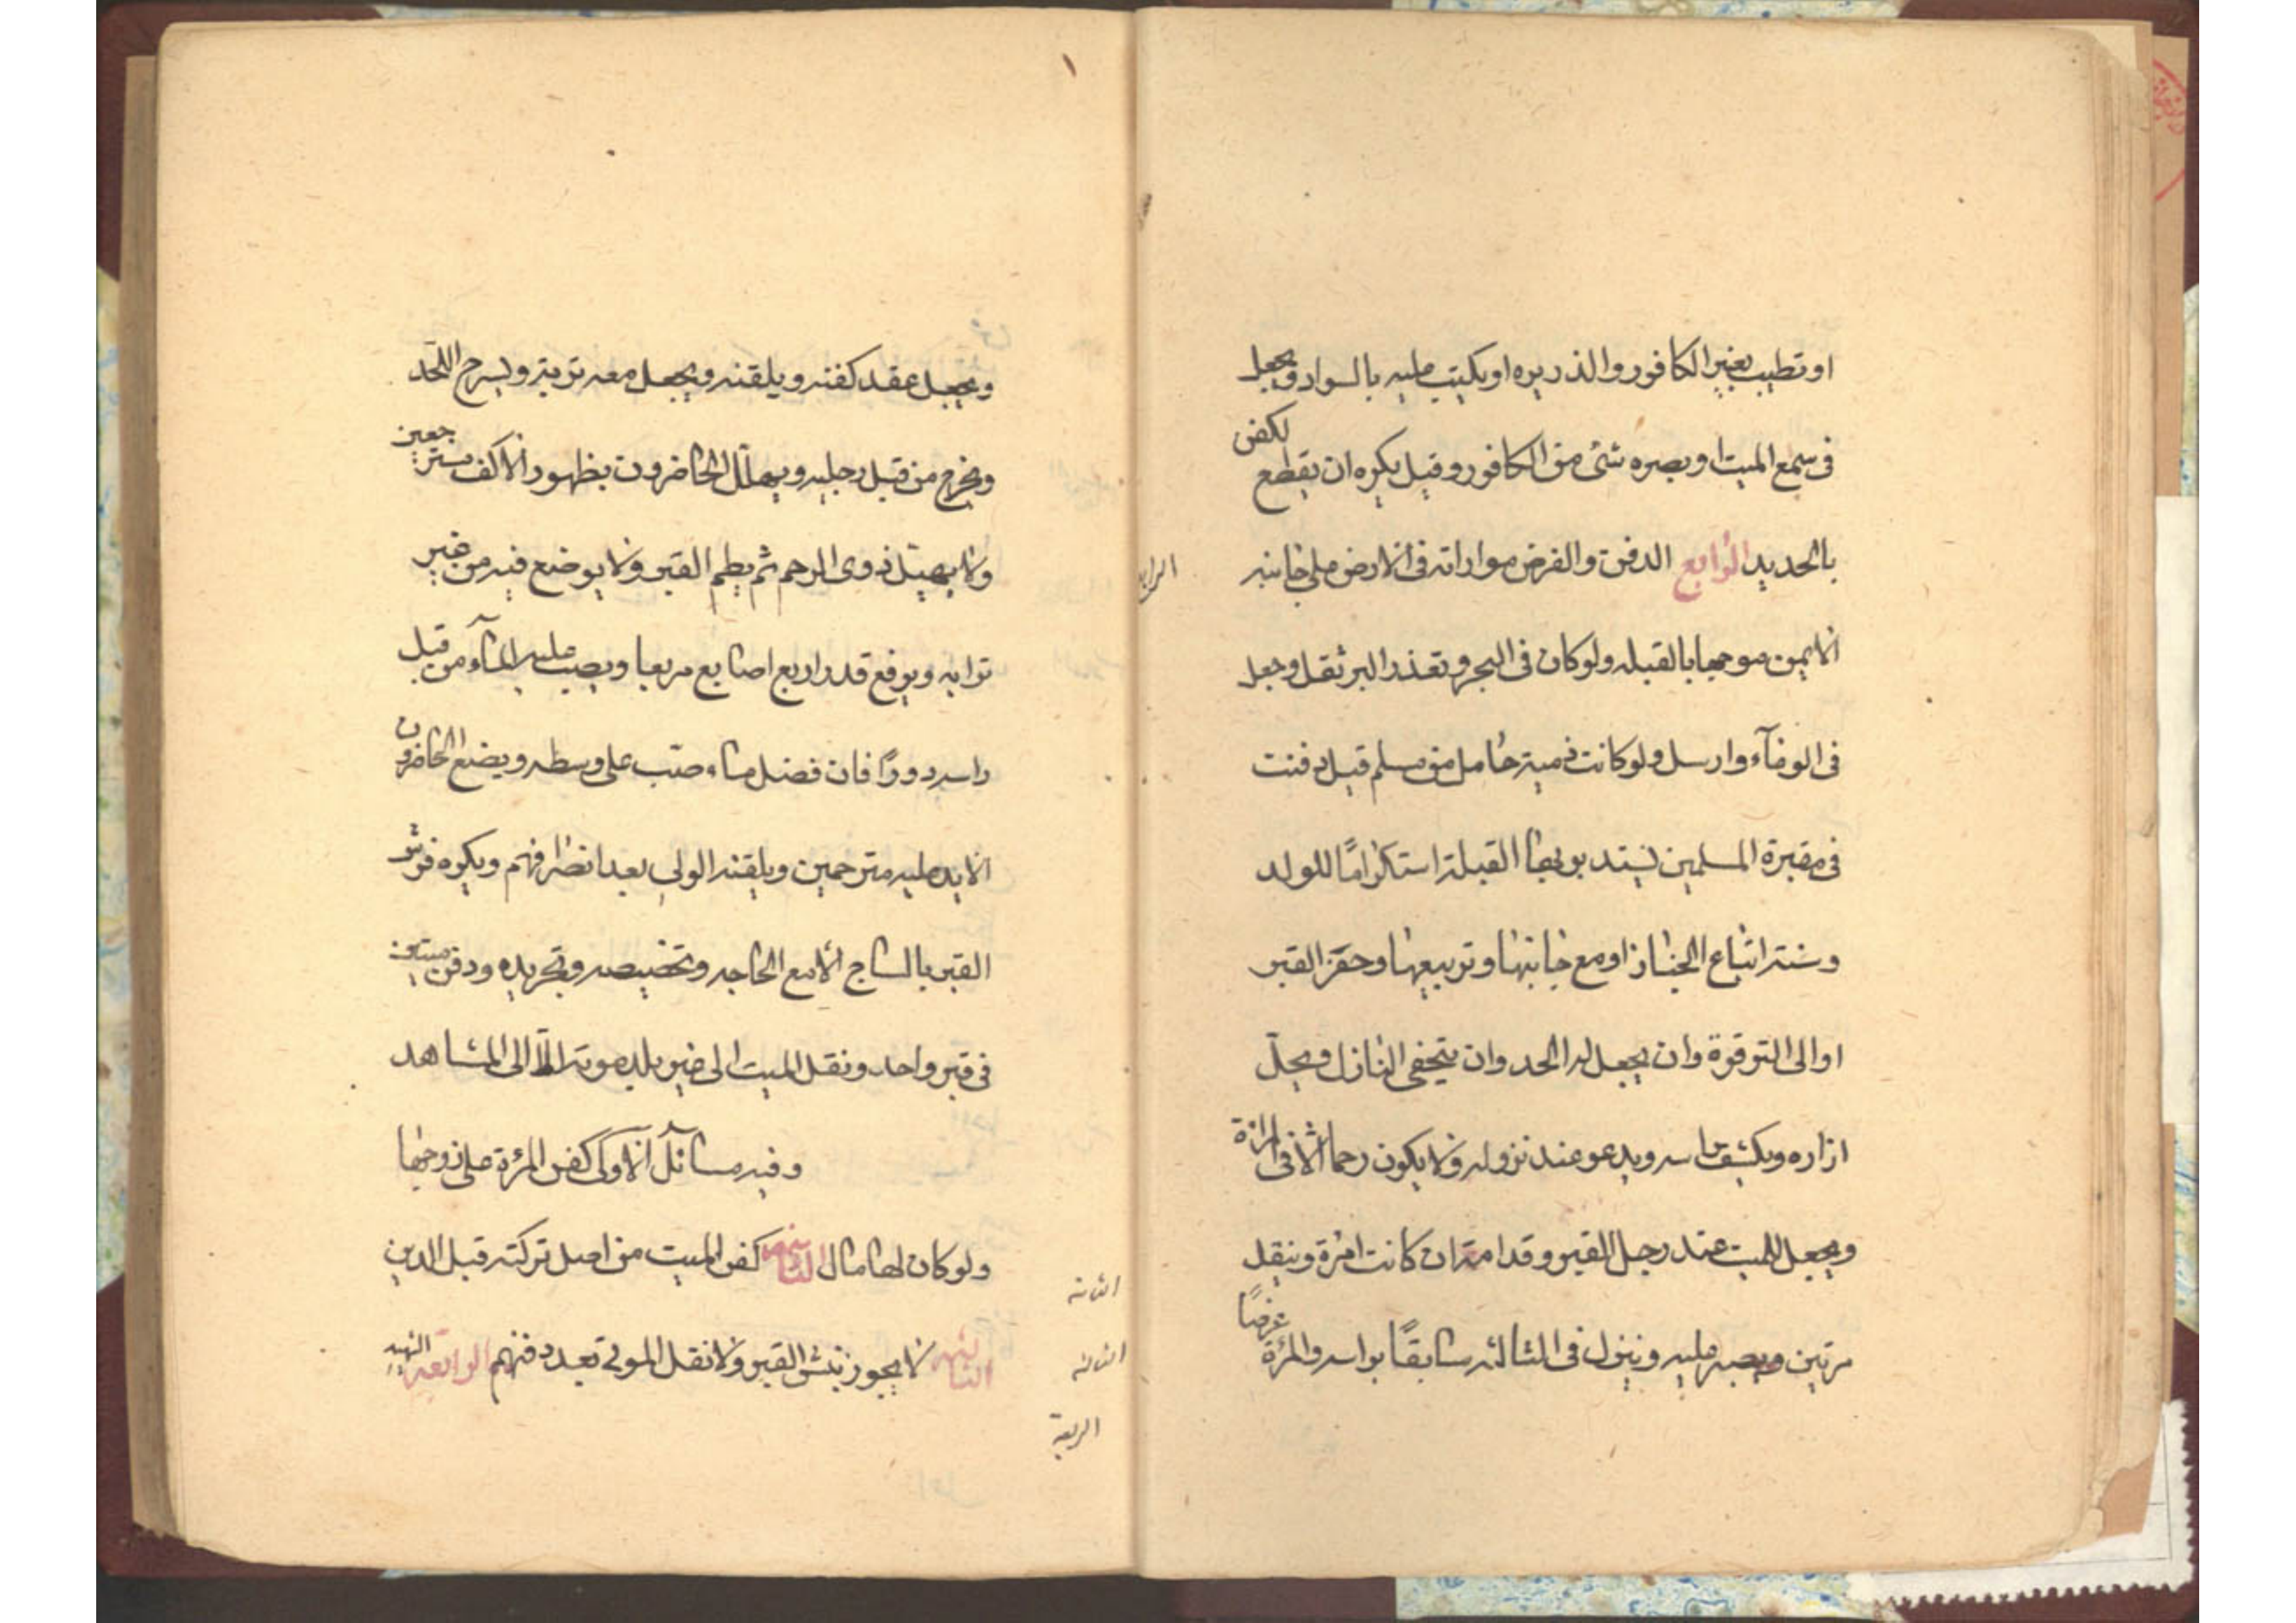 او تطيب بغير الكافور والذريره او يكتب عليه بالسواد و يجعل
فى سمع الميت او بصره شئ من الكافور و قيل يكره ان يقطع الكفن
بالحديد الرابع الدفن والفرض مواراته فى الارض على جانبه
الايمن موجها بالقبله ولو كان فى البحر و تعذر البر ثقل وجعل
فى الوعآء وارسل ولو كانت ذمية حامل من مسلم قيل دفنت
فى مقبرة المسلمين يستدبر بها القبلة استكراما للولد
وسننه اتباع الجنازة او مع جانبها وتربيعها وحفر القبر
او الى الترقوة وان يجعل له الحد وان يتحفى النازل ويحل
ازاره ويكشف راسه ويدعو عند نزوله ولا يكون رحما الا فى المراة
ويجعل الميت عند رجل القبر وقدامه ان كانت امرة وينقل
مرتين ويصبر عليه وينزل فى الثالثه سابقًا براسه والمرئة عرضًا
الرابع
ويجعل عقد كفنه ويلقنه ويجعل معه تربة ويشرج اللحد
ويخرج من قبل رجليه ويهيل الحاضرون بظهور الاكف مسترجعين
ولا يهيل ذوى الرحم ثم يطم القبر ولا يوضع فيه من غير
ترابه ويرفع قدر اربع اصابع مربعا ويصب عليه المآء من قبل
راسه دورًا فان فضل ماء صب على وسطه ويضع الحاضرون
الايد عليه مترحمين ويلقنه الولى بعد انصرافهم ويكره فرش
القبر بالساج الا مع الحاجه وتخصيصه وتجريده ودفن ميتين
فى قبر واحد ونقل الميت الى غير بلد موته الا الى المشاهد
وفيه مسائل الاولى كفن المرئة على زوجها
ولو كان لها مال الثانيه كفن الميت من اصل تركته قبل الدين
الثالثه لا يجوز نبش القبر ولا نقل الموتى بعد دفنهم الرابعه الشهيد
الثانيه
الثالثه
الرابعة